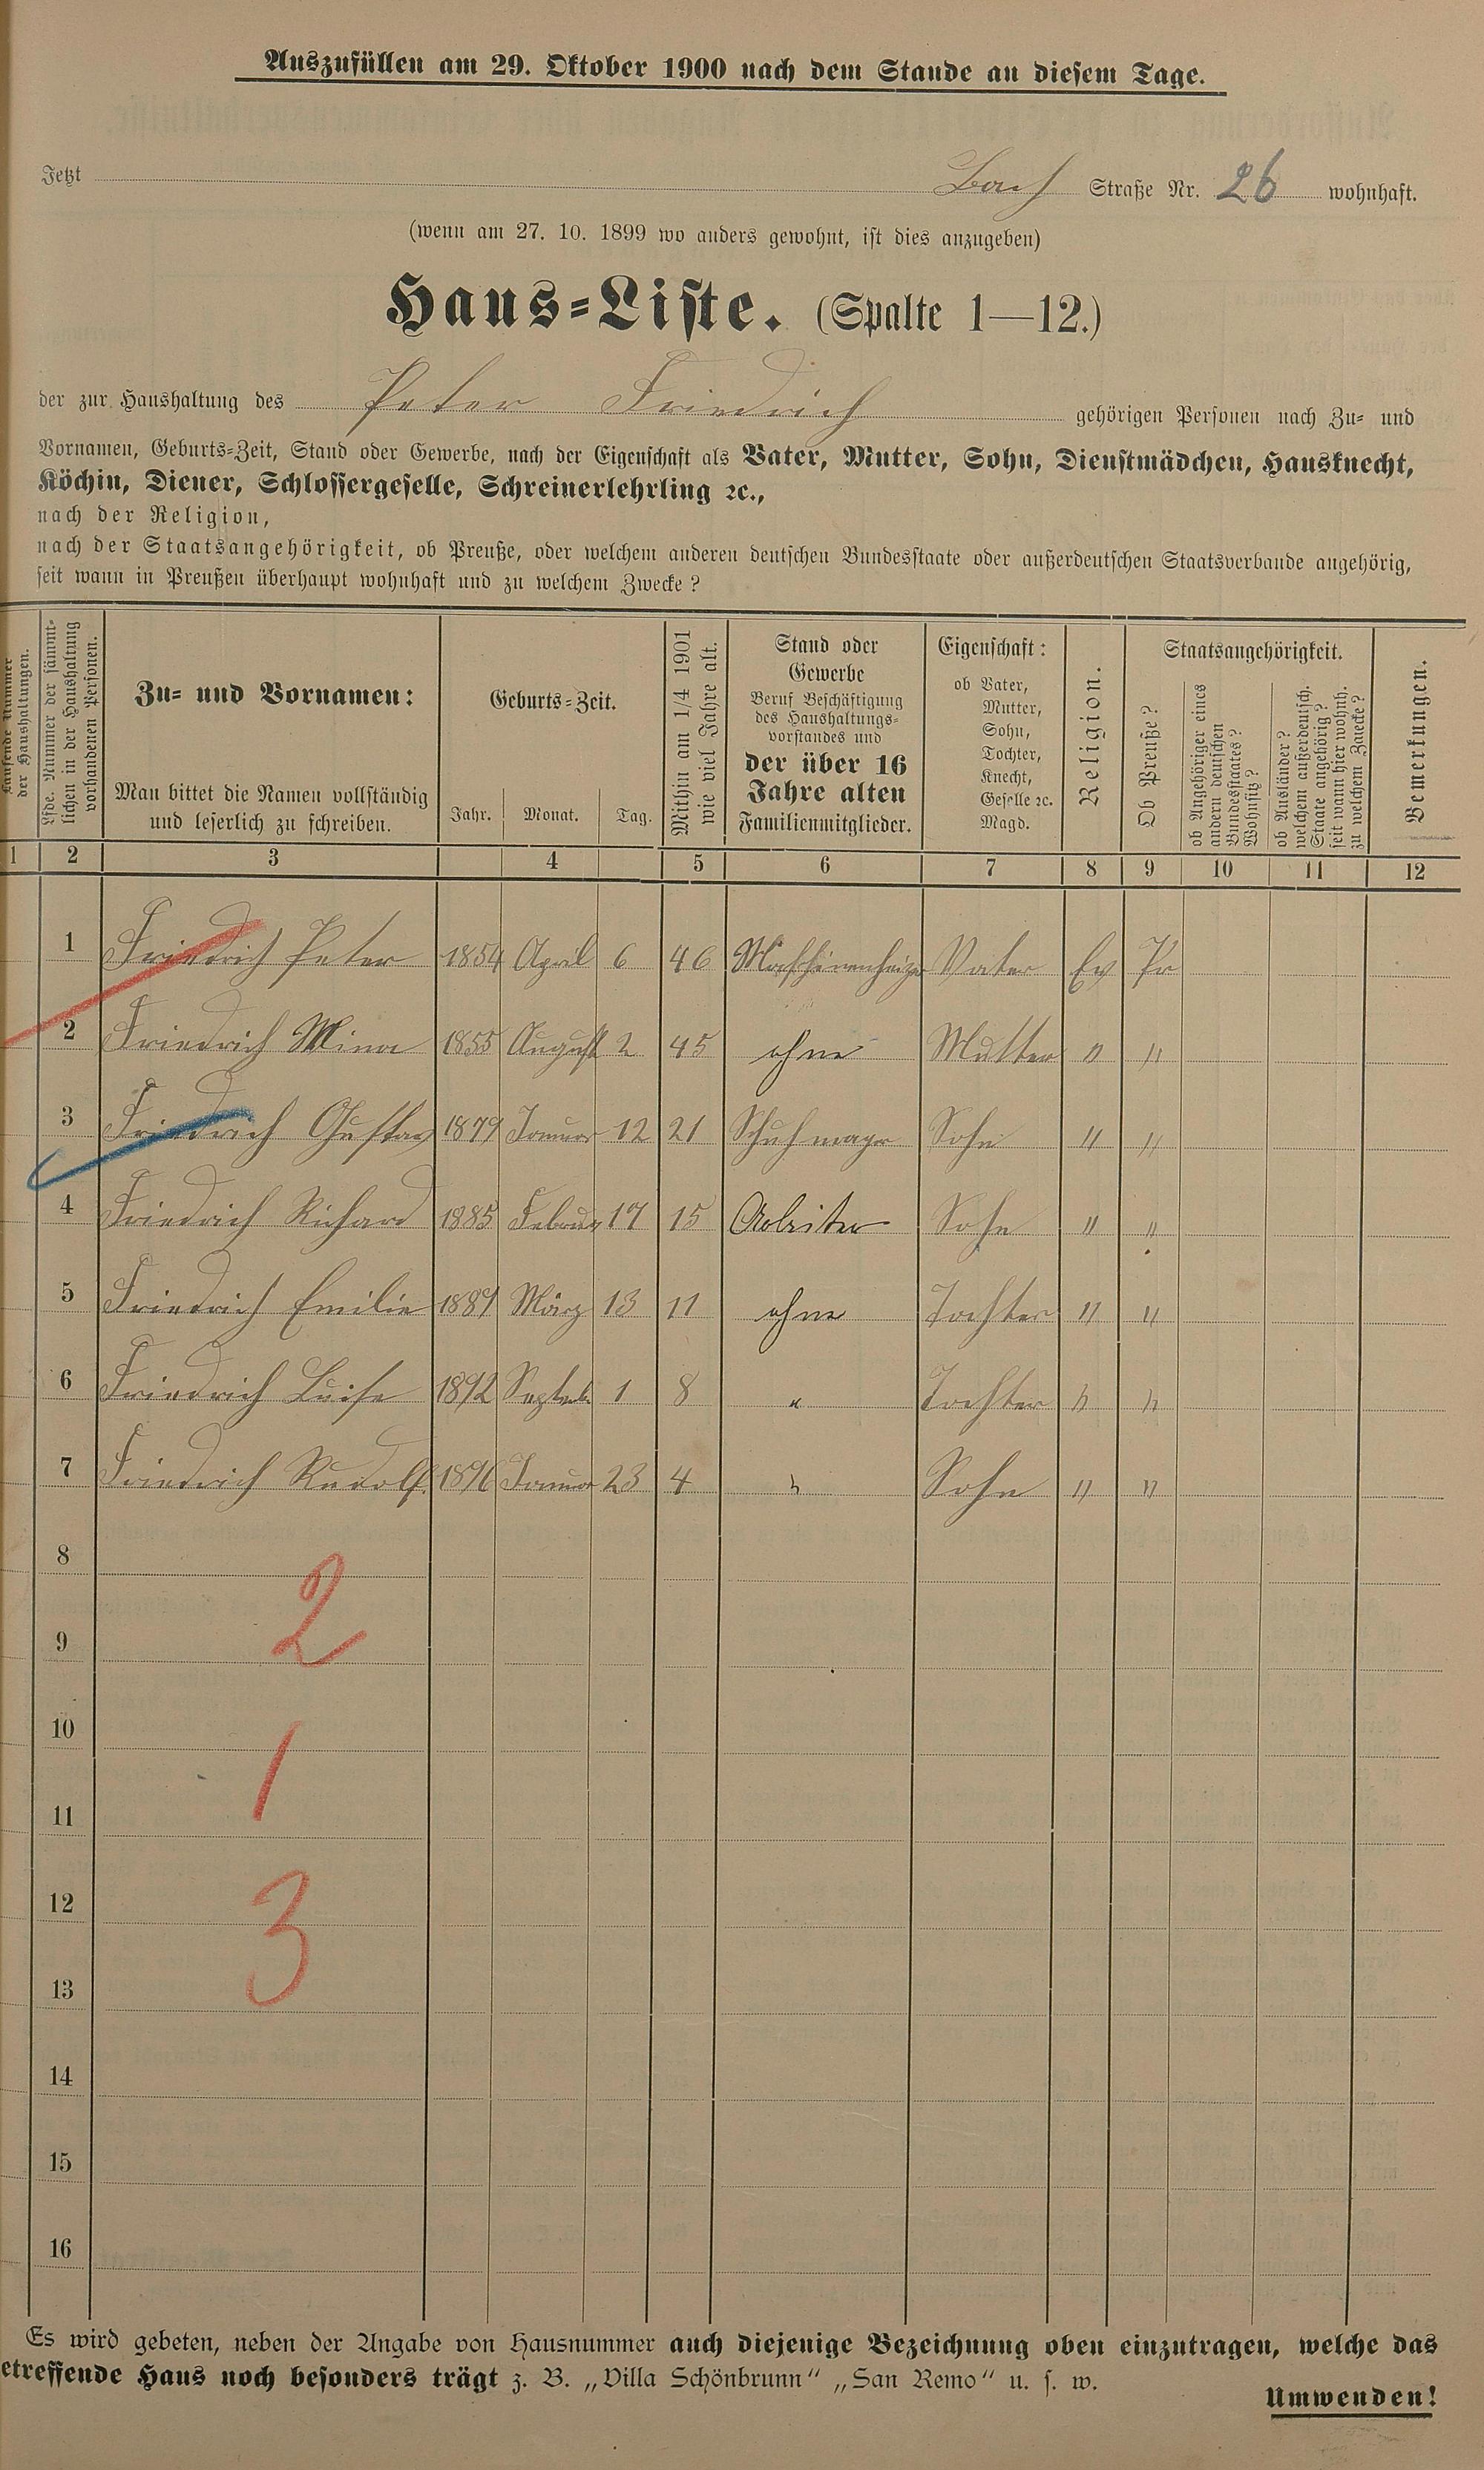 Auszufüllen am 29. Oktober 1900 nach dem Stande an diesem Tage.
Jetzt Bach Straße Nr. 26 wohnhaft.
(wenn am 27. 10. 1899 wo anders gewohnt, ist dies anzugeben)
Haus-Liste. (Spalte 1—12.)
der zur Haushaltung des Peter Friedrich gehörigen Personen nach Zu- und
Vornamen, Geburts-Zeit, Stand oder Gewerbe, nach der Eigenschaft als Vater, Mutter, Sohn, Dienstmädchen, Hausknecht,
Köchin, Diener, Schlossergeselle, Schreinerlehrling ꝛc.,
nach der Religion,
nach der Staatsangehörigkeit, ob Preuße, oder welchem anderen deutschen Bundesstaate oder außerdeutschen Staatsverbande angehörig,
seit wann in Preußen überhaupt wohnhaft und zu welchem Zwecke?
Laufende Nummer
der Haushaltungen.
Lfde. Nummer der sämmt-
lichen in der Haushaltung
vorhandenen Personen.
Zu- und Vornamen:
Man bittet die Namen vollständig
und leserlich zu schreiben.
Geburts-Zeit.
Jahr. Monat. Tag.
Mithin am 1/4 1901
wie viel Jahre alt.
Stand oder
Gewerbe
Beruf Beschäftigung
des Haushaltungs-
vorstandes und
der über 16
Jahre alten
Familienmitglieder.
Eigenschaft:
ob Vater,
Mutter,
Sohn,
Tochter,
Knecht,
Geselle ꝛc.
Magd.
Religion.
Staatsangehörigkeit.
Ob Preuße?
ob Angehöriger eines
andern deutschen
Bundesstaates?
Wohnsitz?
ob Ausländer?
welchem außerdeutsch.
Staate angehörig?
seit wann hier wohnh.
zu welchem Zwecke?
Bemerkungen.
1 2 3 4 5 6 7 8 9 10 11 12
1 Friedrich Peter 1854 April 6 46 Maschinenheizer Vater Ev Pr
2 Friedrich Mina 1855 August 2 45 ohne Mutter " "
3 Friedrich Gustav 1879 Januar 12 21 Sohn " "
4 Friedrich Richard 1885 Februar 17 15 Arbeiter Sohn " "
5 Friedrich Emilie 1889 März 13 11 ohne Tochter " "
6 Friedrich Luise 1892 Septemb 1 8 " Tochter " "
7 Friedrich Rudolf. 1896 Januar 23 4 " Sohn " "
8
2
9
10
1
11
12
3
13
14
15
16
Es wird gebeten, neben der Angabe von Hausnummer auch diejenige Bezeichnung oben einzutragen, welche das
etreffende Haus noch besonders trägt z. B. „Villa Schönbrunn" „San Remo" u. s. w.
Umwenden!